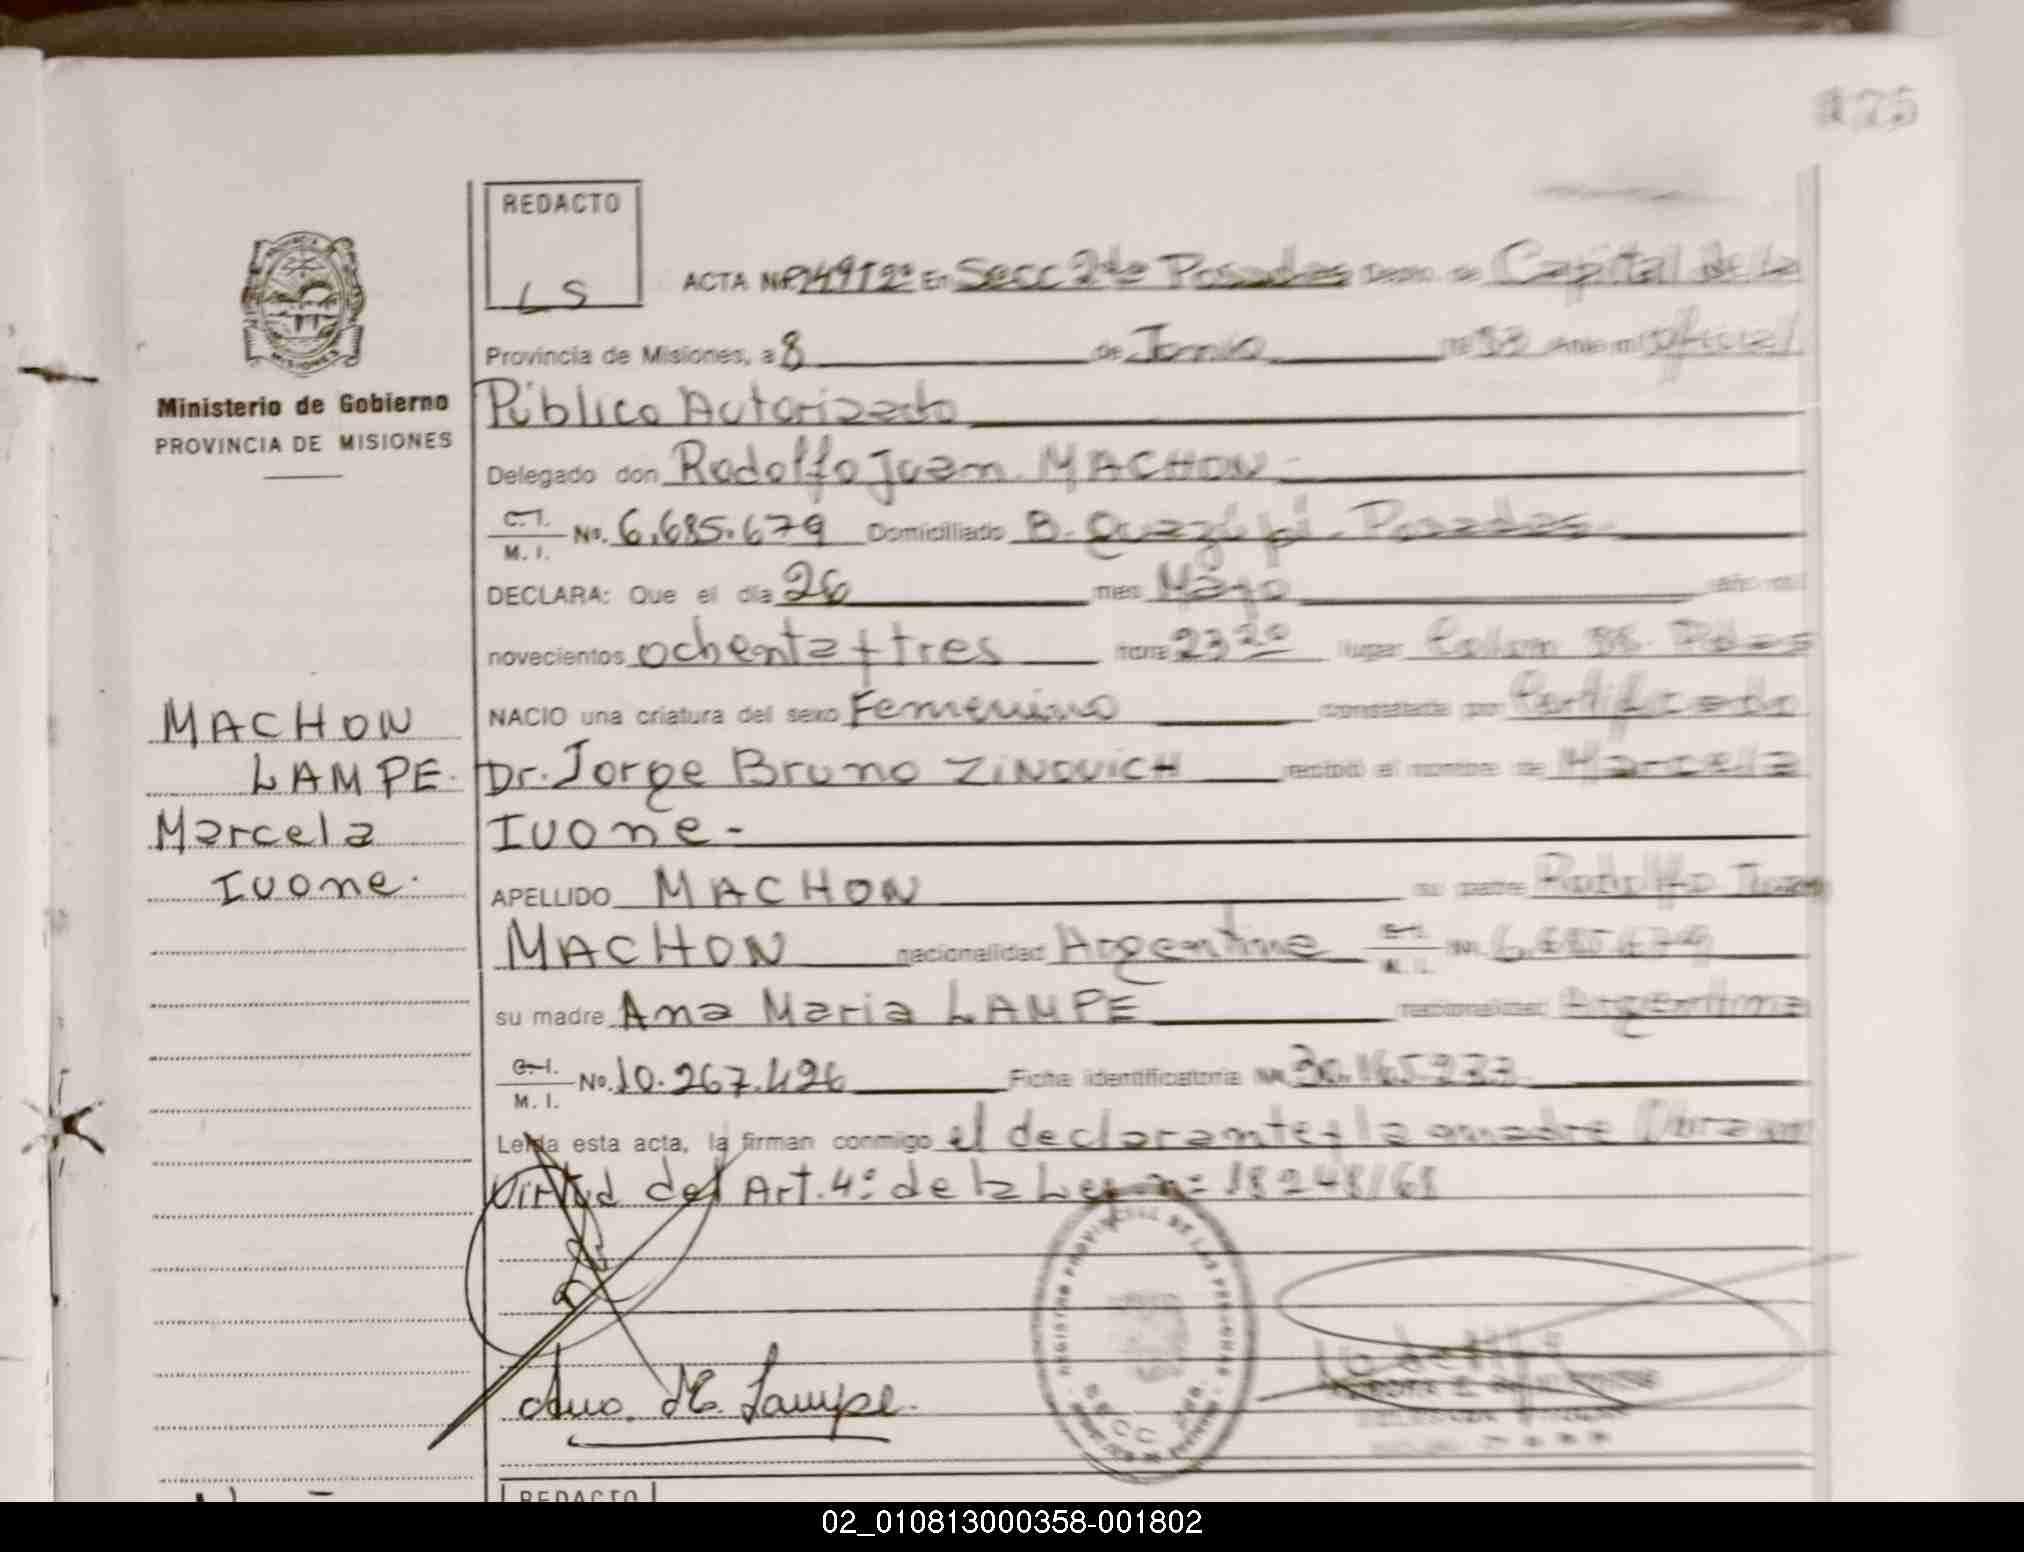 175
REDACTO
LS
ACTA Nº 1491 2º En Secc 2da Posadas Depto. de Capital de la
Provincia de Misiones, a 8 de Junio de 83 Ante mi Oficial
Público Autorizado
Delegado don Rodolfo Juan MACHON -
C.I. M. I. No. 6.685.679 Domiciliado B. Posadas
DECLARA: Que el día 26 mes Mayo año mil
novecientos ochenta y tres hora 23 20 lugar
NACIO una criatura del sexo Femenino constatado por Certificado
Dr. Jorge Bruno ZINOVICH recibió el nombre de Marcela
Ivone -
APELLIDO MACHON su padre Rodolfo Juan
MACHON nacionalidad Argentina C.I. M. I. No. 6.685.679
su madre Ana Maria LAMPE nacionalidad Argentina
C.I. M. I. No. 10.267.426 Ficha identificatoria No. 30.165.233
Leida esta acta, la firman conmigo el declarante y la madre
Virtud del Art. 4º de la Ley nº 18248/68
Ministerio de Gobierno
PROVINCIA DE MISIONES
MACHON
LAMPE.
Marcela
Ivone.
Ana. M. Lampe.
REGISTRO PROVINCIAL DE LAS PERSONAS
SECC 2da.
REDACTO
02_010813000358-001802